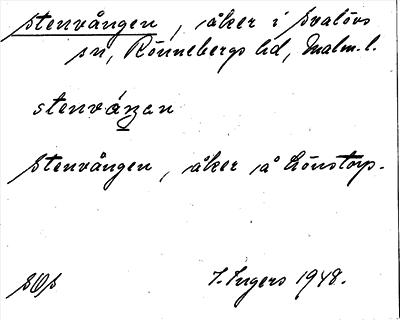 Stenvången, åker i Svalövs
sn, Rönnebergs hd, Malm. l.
stenváŋan
Stenvången, åker å Lönstorp.
I. Ingers 1948.